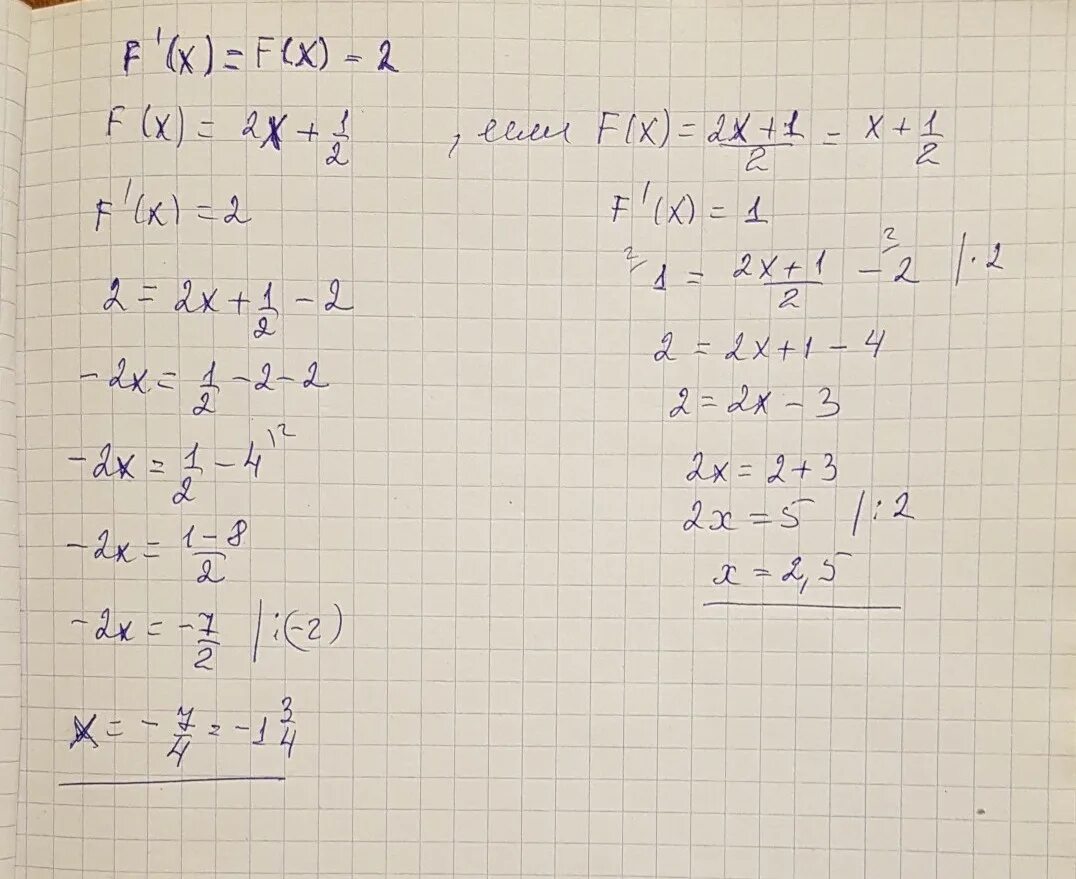 F'(x) = F(x) - 2
F(x) = 2x + 1/2 , если F(x) = (2x+1)/2 = x + 1/2
F'(x) = 2
2 = 2x + 1/2 - 2
-2x = 1/2 - 2 - 2
-2x = 1/2 - 4 \2
-2x = (1-8)/2
-2x = -7/2 | : (-2)
x = -7/4 = -1 3/4
F'(x) = 1
2/ 1 = (2x+1)/2 - 2/ 2 | · 2
2 = 2x + 1 - 4
2 = 2x - 3
2x = 2 + 3
2x = 5 | : 2
x = 2,5